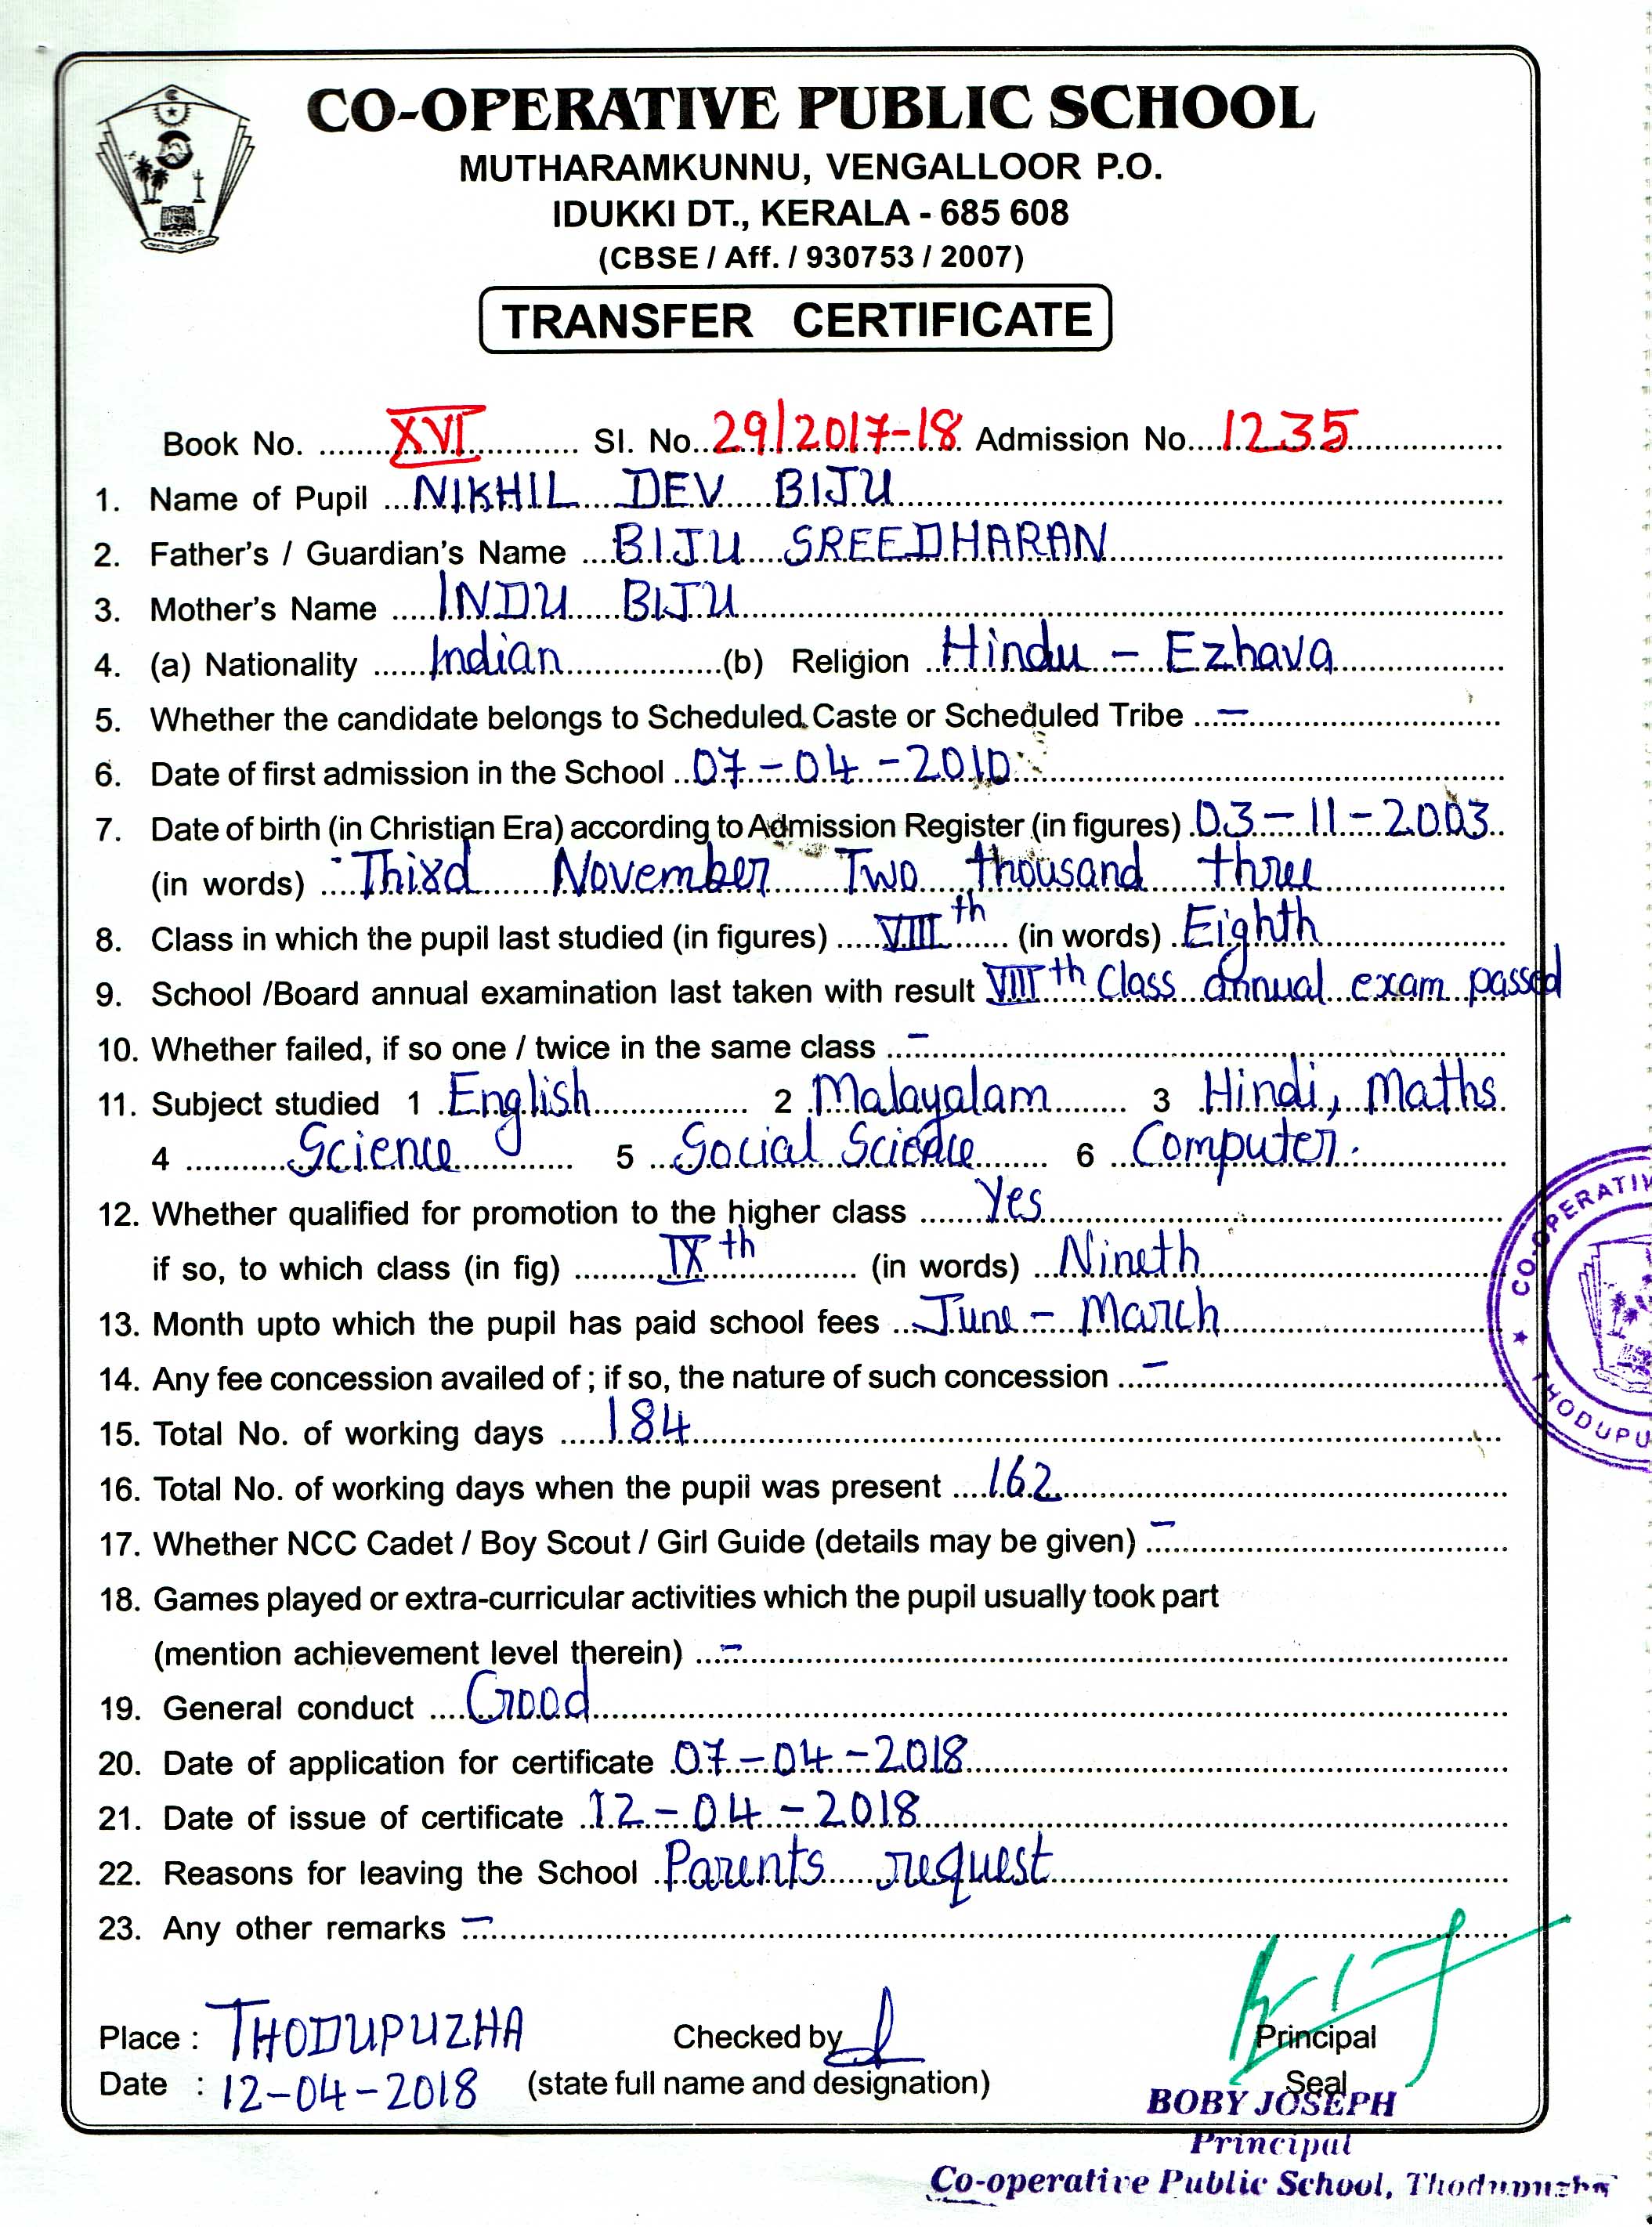 CO-OPERATIVE PUBLIC SCHOOL
MUTHARAMKUNNU, VENGALLOOR P.O.
IDUKKI DT., KERALA - 685 608
(CBSE / Aff. / 930753 / 2007)
TRANSFER CERTIFICATE
Book No. XVI Sl. No. 29/2017-18 Admission No. 1235
1. Name of Pupil NIKHIL DEV BIJU
2. Father's / Guardian's Name BIJU SREEDHARAN
3. Mother's Name INDU BIJU
4. (a) Nationality Indian (b) Religion Hindu - Ezhava
5. Whether the candidate belongs to Scheduled Caste or Scheduled Tribe -
6. Date of first admission in the School 07-04-2010
7. Date of birth (in Christian Era) according to Admission Register (in figures) 03-11-2003
(in words) Third November Two thousand three
8. Class in which the pupil last studied (in figures) VIII th (in words) Eighth
9. School /Board annual examination last taken with result VIII th Class annual exam passed
10. Whether failed, if so one / twice in the same class -
11. Subject studied 1 English 2 Malayalam 3 Hindi, Maths
4 Science 5 Social Science 6 Computer.
12. Whether qualified for promotion to the higher class Yes
if so, to which class (in fig) IX th (in words) Nineth
13. Month upto which the pupil has paid school fees June - March
14. Any fee concession availed of ; if so, the nature of such concession -
15. Total No. of working days 184
16. Total No. of working days when the pupil was present 162
17. Whether NCC Cadet / Boy Scout / Girl Guide (details may be given) -
18. Games played or extra-curricular activities which the pupil usually took part
(mention achievement level therein) -
19. General conduct Good
20. Date of application for certificate 07-04-2018
21. Date of issue of certificate 12-04-2018
22. Reasons for leaving the School Parents request
23. Any other remarks -
Place : THODUPUZHA Checked by Principal
Date : 12-04-2018 (state full name and designation) Seal
BOBY JOSEPH
Principal
Co-operative Public School, Thodupuzha
CO-OPERATIV
THODUPU